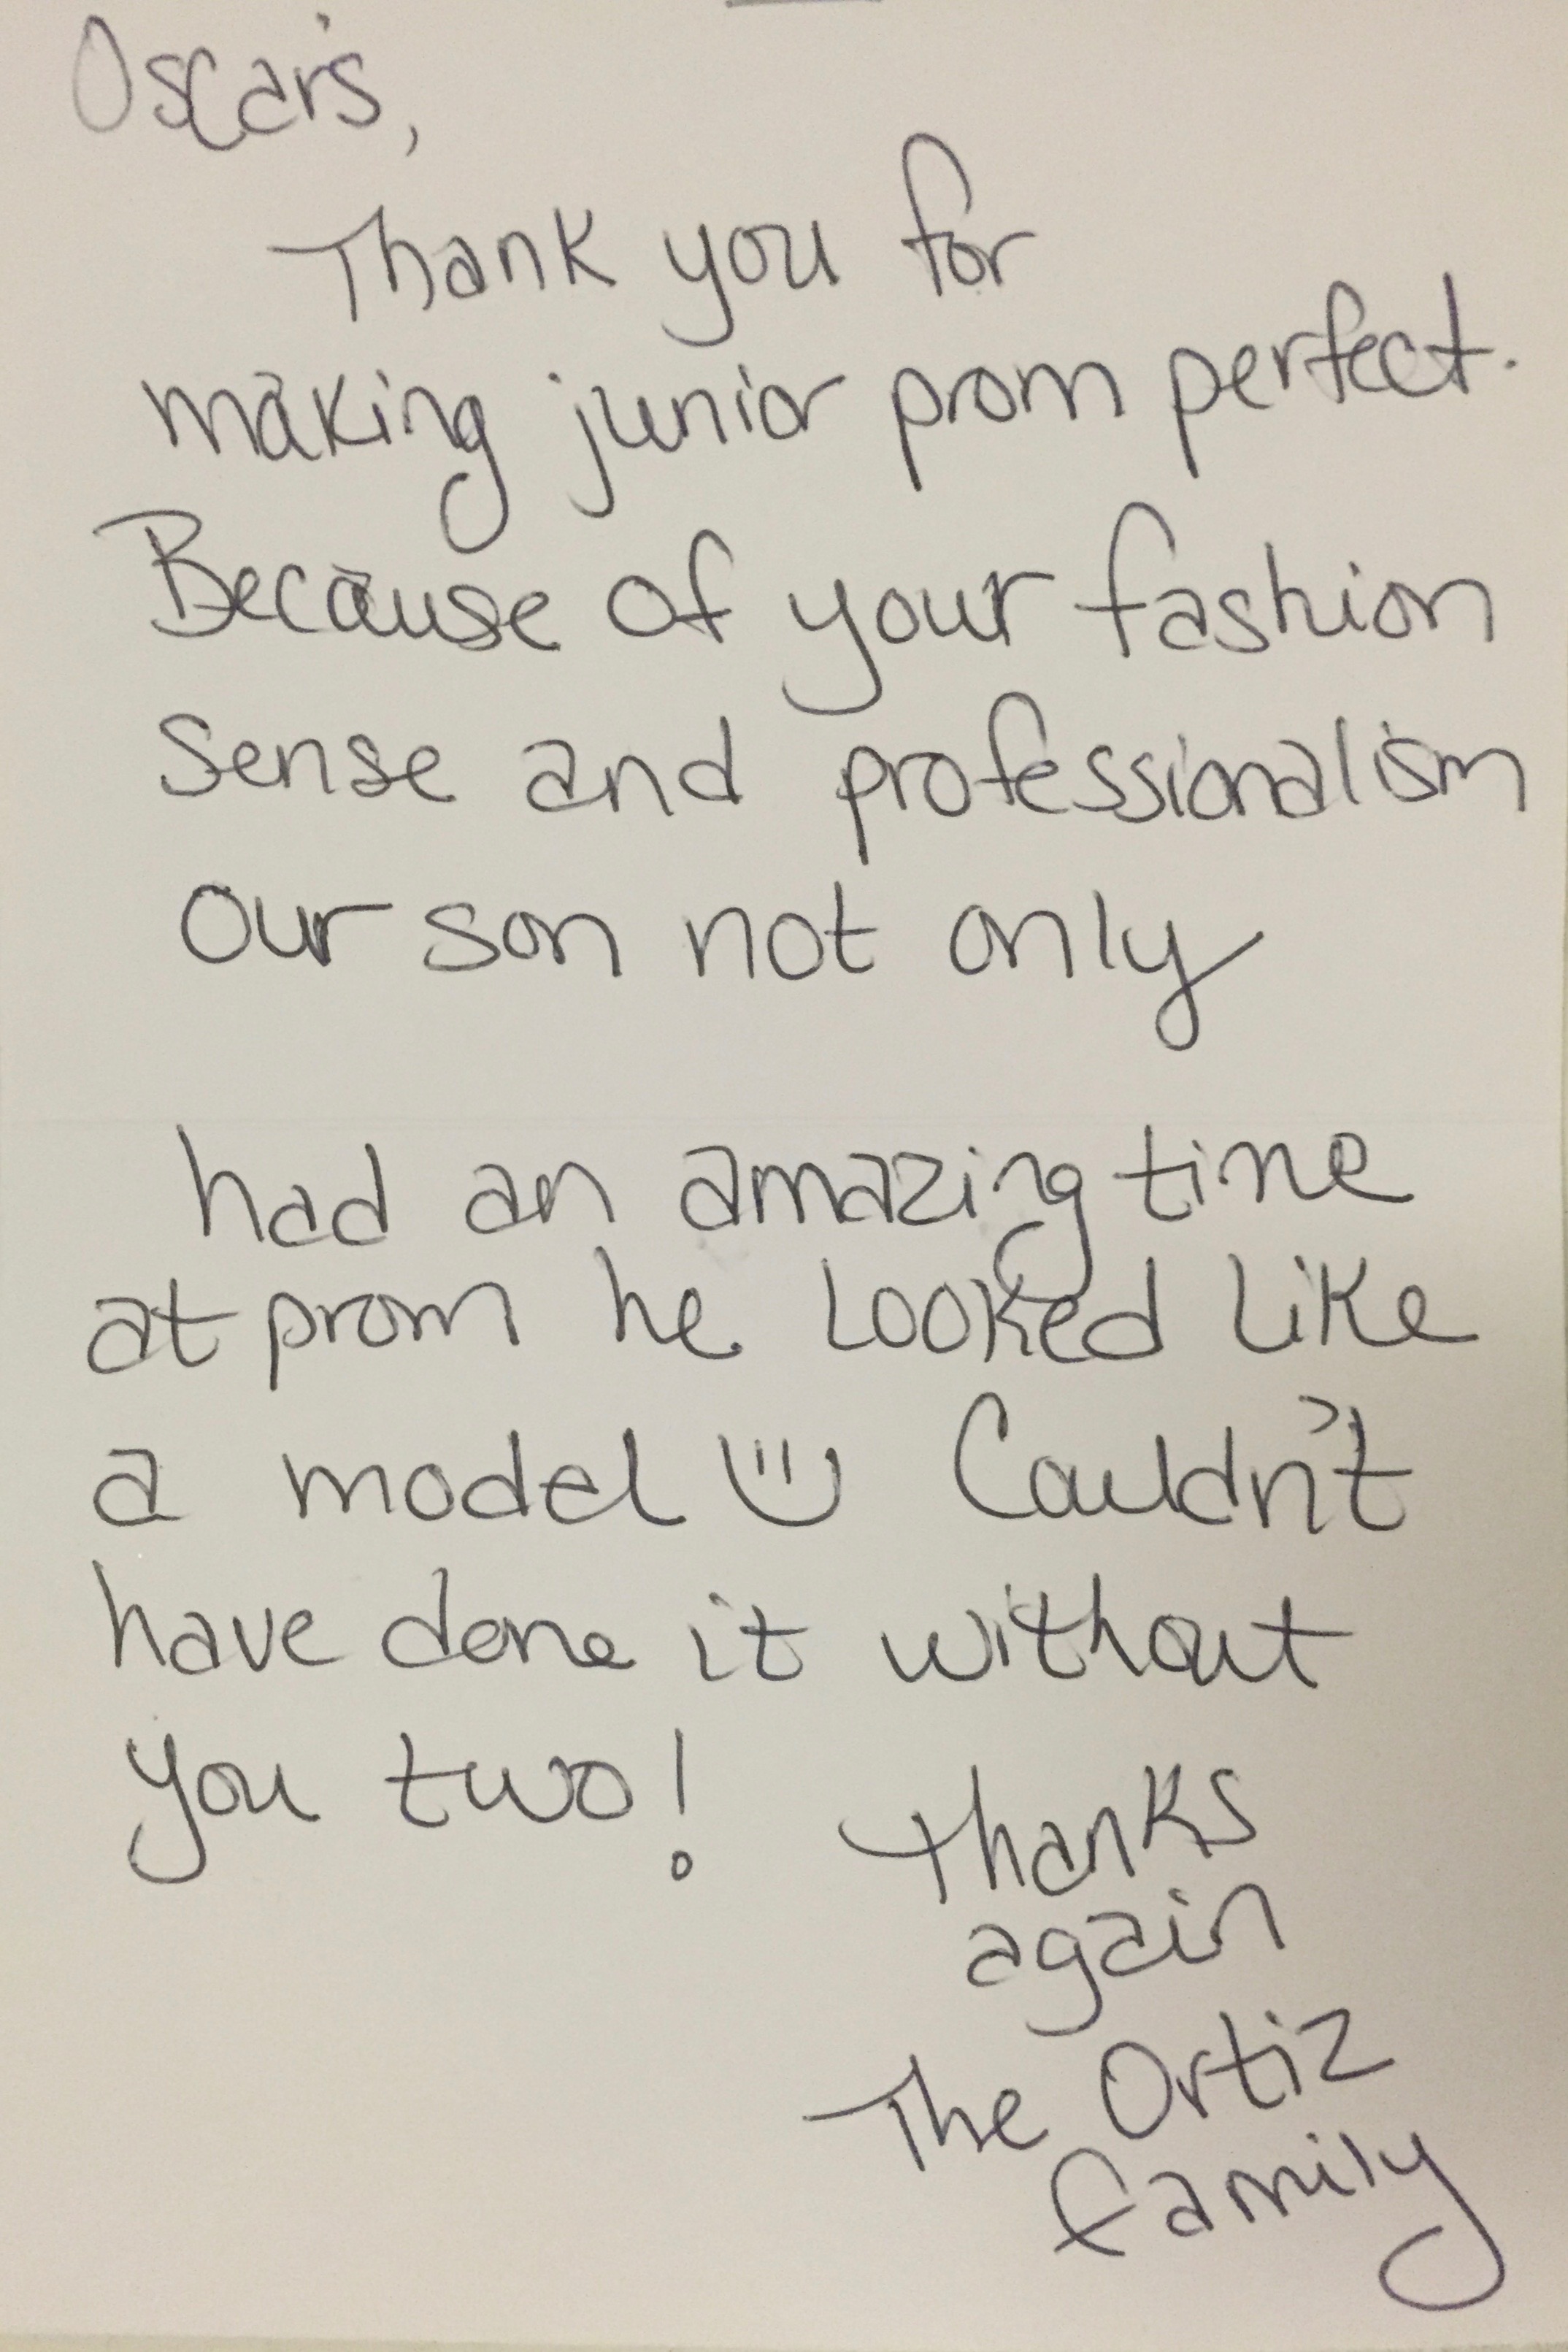 Oscar's,
Thank you for
making junior prom perfect.
Because of your fashion
sense and professionalism
our son not only
had an amazing time
at prom he looked like
a model Couldn't
have done it without
you two!
Thanks
again
The Ortiz
family